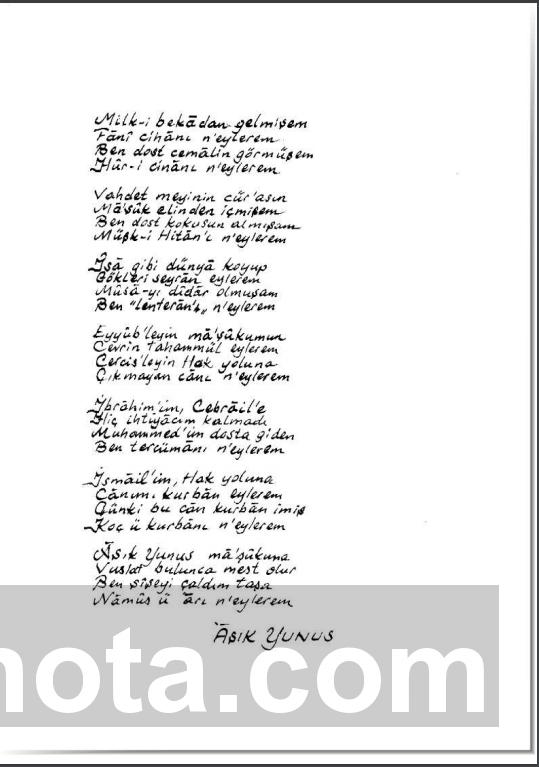 Milk-i bekādan gelmişem
Fānî cihānı n'eylerem
Ben dost cemālin görmüşem
Hûr-i cinānı n'eylerem
Vahdet meyinin cür'asın
Mā'şûk elinden içmişem
Ben dost kokusun almışam
Müşk-i Hitān'ı n'eylerem
İsā gibi dünyā koyup
Gökleri seyrān eylerem
Mûsā-yı dîdār olmuşam
Ben "lenterānî" n'eylerem
Eyyûb'leyin mā'şûkumun
Cevrin tahammül eylerem
Cercis'leyin Hak yoluna
Çıkmayan cānı n'eylerem
İbrāhim'im, Cebrāil'e
Hiç ihtiyācım kalmadı
Muhammed'im dosta giden
Ben tercümānı n'eylerem
İsmāil'im, Hak yoluna
Cānımı kurbān eylerem
Çünki bu cān kurbān imiş
Koç ü kurbānı n'eylerem
Āşık Yunus mā'şûkuna
Vuslat bulunca mest olur
Ben şîşeyi çaldım taşa
Nāmûs ü 'ārı n'eylerem
'ĀŞIK YUNUS
nota.com